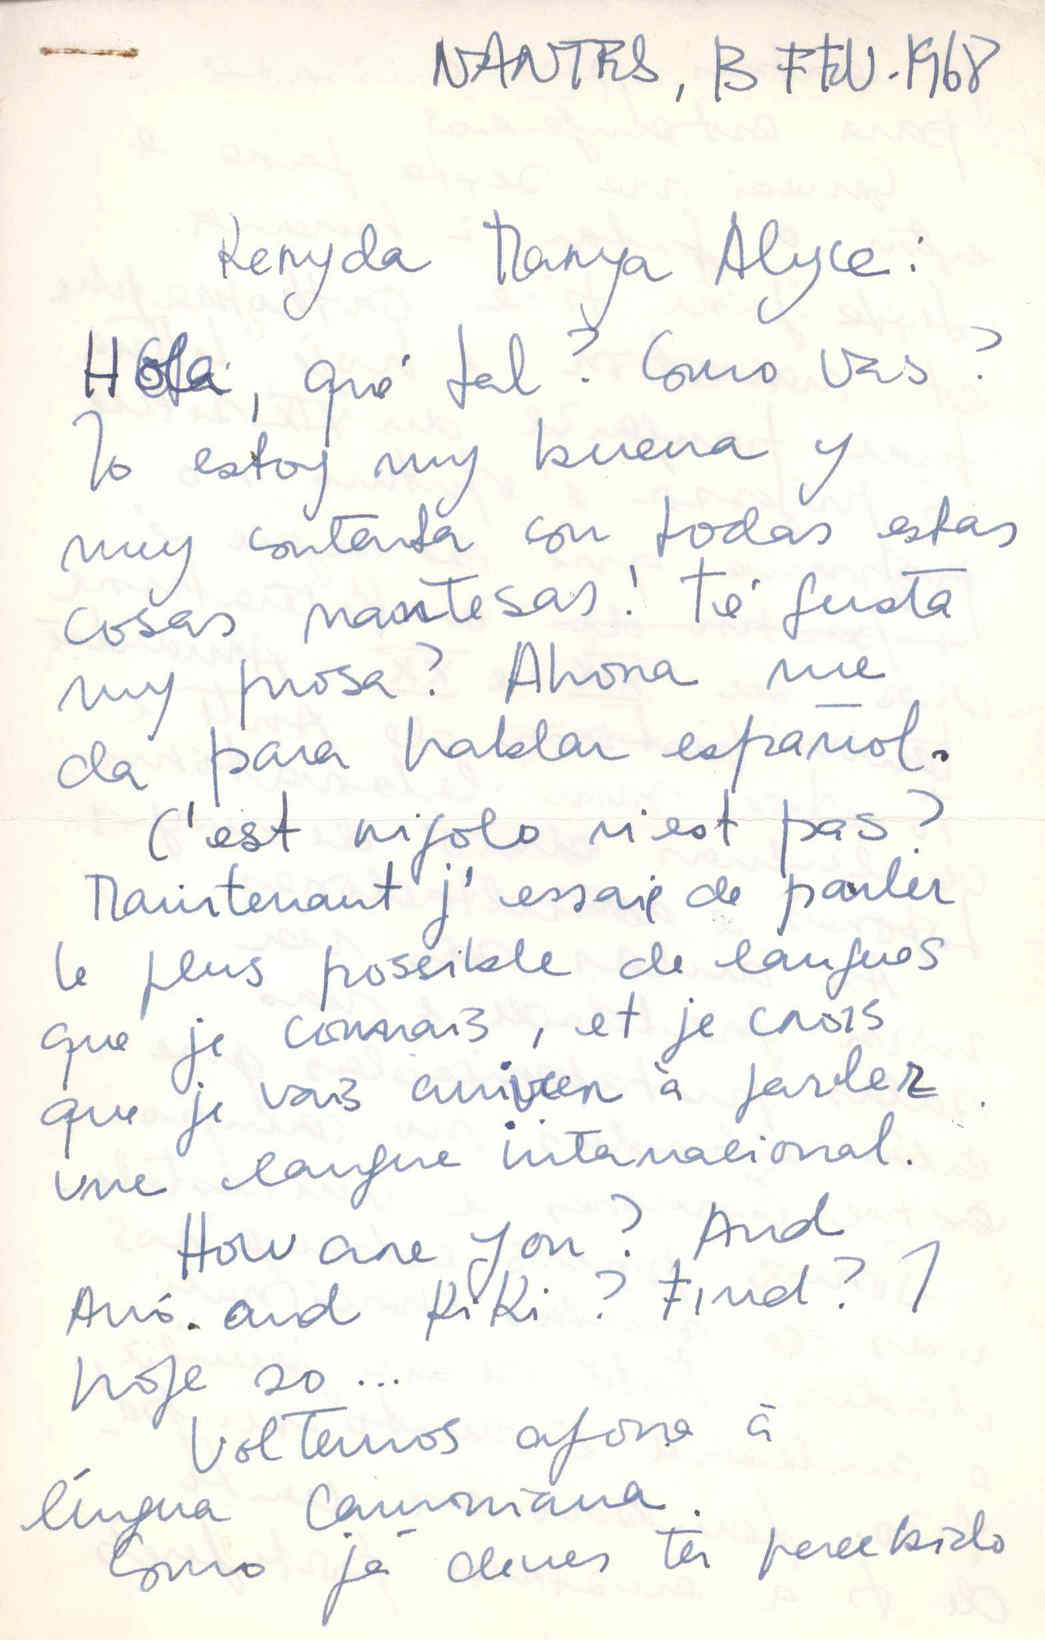 NANTES, 13 FEV. 1968
Keryda Marya Alyce:
Hola, qué tal? Como vas?
Yo estoy my buena y
muy contenta con todas estas
cosas nantesas! Té gusta
my prosa? Ahora me
da para hablar español.
C'est rigolo n'est pas?
Maintenant j'essaie de parler
le plus possible de langues
que je connais, et je crois
que je vais arriver à parler
une langue internacional.
How are you? And
Avó. and Kiki? Find? I
hope so...
Voltemos agora à
língua camoniana.
Como já deves ter percebido